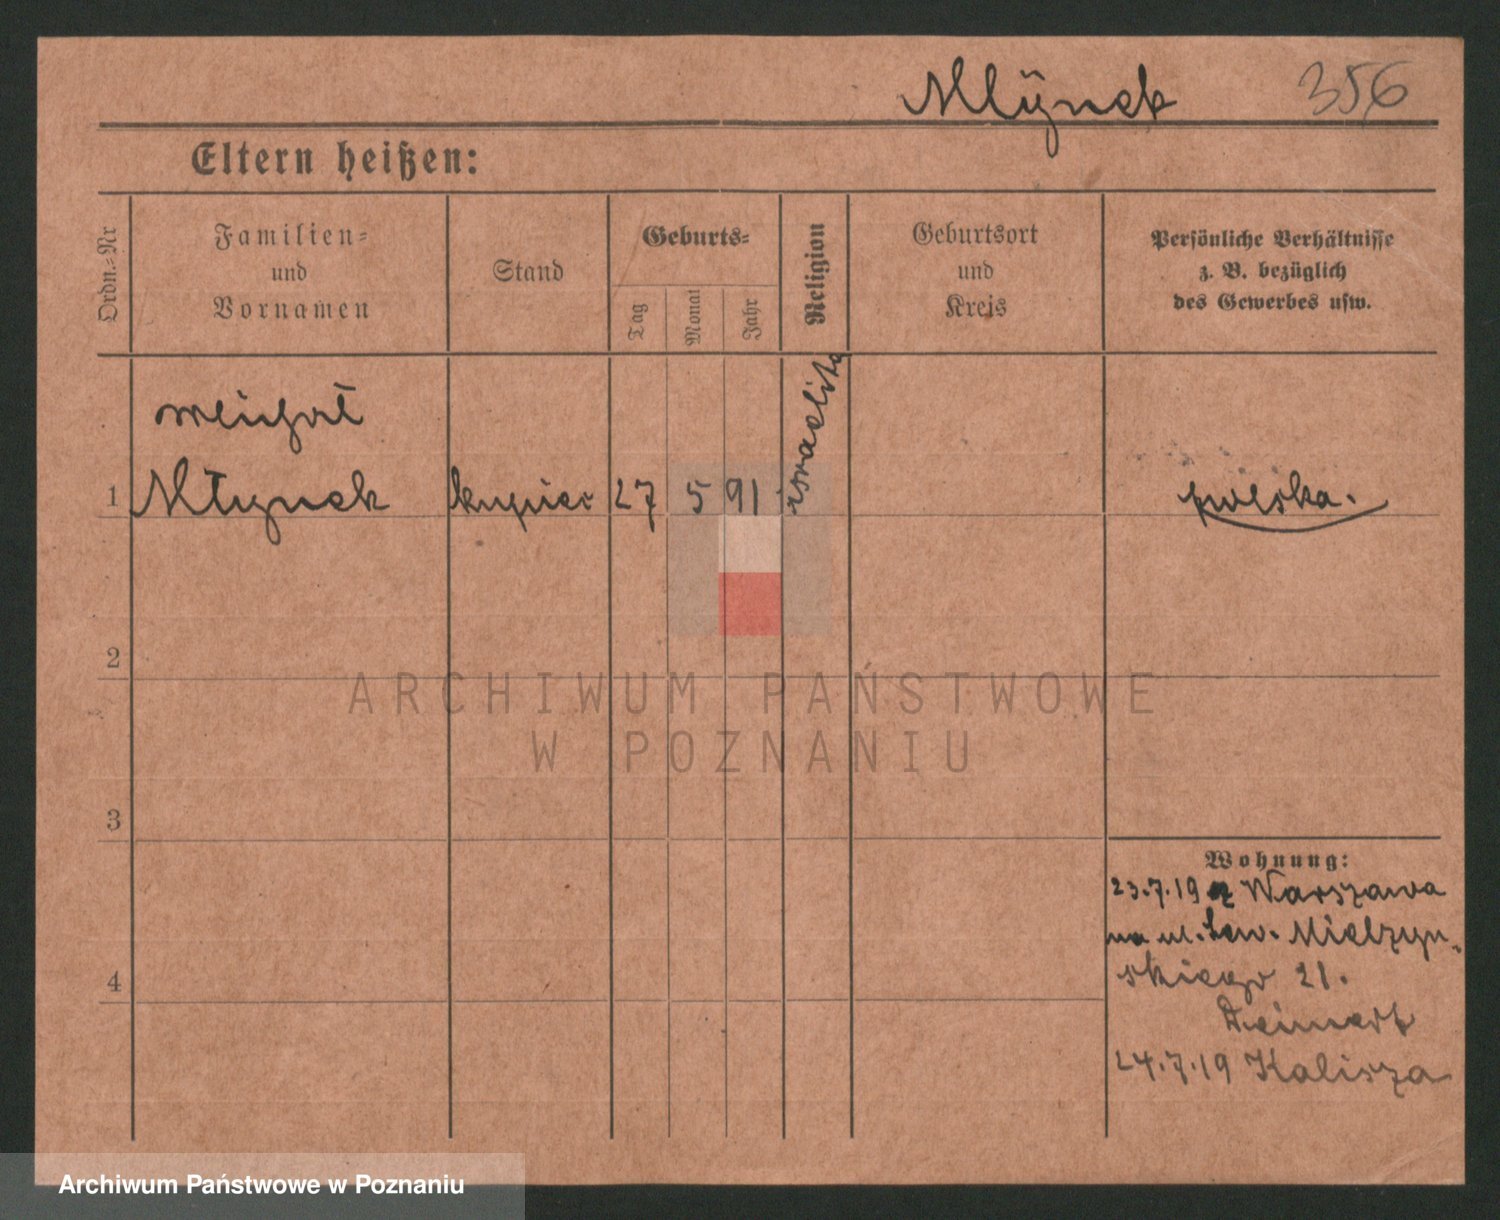 Mlÿnek 356
Eltern heißen:
Ordn.-Nr
Familien-
und
Vornamen
Stand
Geburts-
Tag
Monat
Jahr
Religion
Geburtsort
und
Kreis
Persönliche Verhältnisse
z. B. bezüglich
des Gewerbes usw.
1
Młynek
kupiec
27
5
91
polska.
2
3
4
ARCHIWUM PAŃSTWOWE
W POZNANIU
Wohnung:
23.7.19 z Warszawa
na ul. Sew. Mielzyn-
skiego 21.
24.7.19 Kalisza
Archiwum Państwowe w Poznaniu